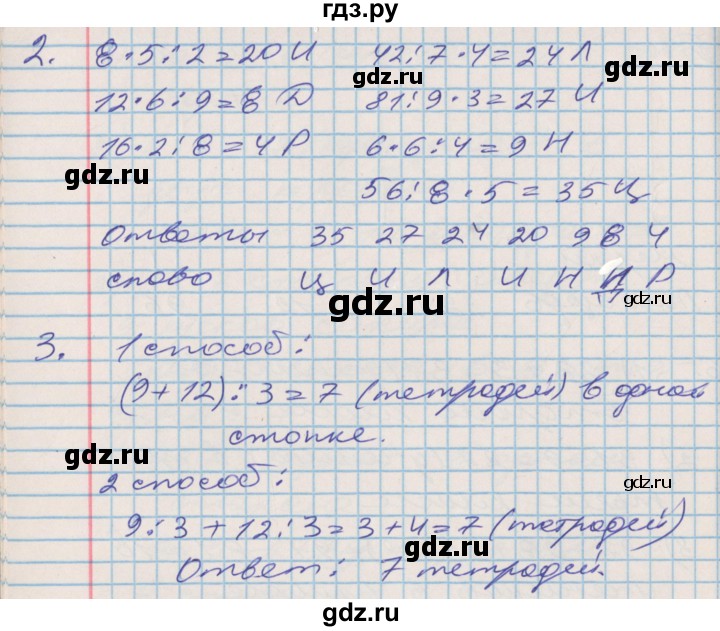 гдз.ру
2. 8·5:2=20 И 42:7·4=24 Л
gdz.ru
12·6:9=8 Д 81:9·3=27 И
16·2:8=4 Р 6·6:4=9 Н
gdz.ru
gdz.ru
56:8·5=35 Ц
Ответы 35 27 24 20 9 8 4
слово Ц И Л И Н Д Р
gdz.ru
3. 1 способ:
(9+12):3=7 (тетрадей) в одной
стопке.
gdz.ru
gdz.ru
2 способ:
9:3+12:3=3+4=7 (тетрадей)
gdz.ru
Ответ: 7 тетрадей.
gdz.ru